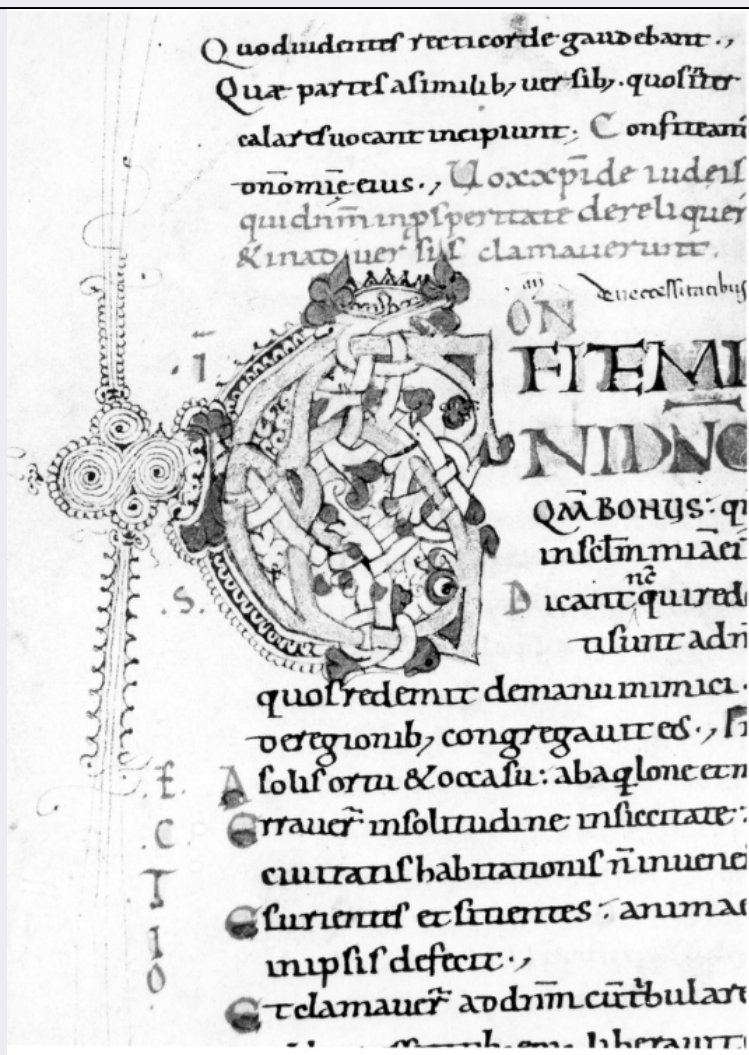 Quoduidentes recticorde gaudebant.,
Quæ partes asimilib; uersib; quositer
calaresuocant incipiunt; Confiteani
onomię eius., Uoxxp̄ide iudeis
quidnm̄inpsperitate derelíquer
&inaduer̄sis clamauerunt.
necessitatibus
ON
.ī FITEMI
NIDNO
QM̄ BONUS: q
insclm̄miaei
.S. Dicantnc̄quired
tisuntadn
quosredemit demanuinimici.
deregionib; congregauiteos.,
Asolisortu &occasu: abaqlone etm
Errauer̄ insolitudine insiccitate:
ciuitatishabitationis n̄inuene
Esurientes etsitientes: animae
inipsis defecit.,
Etclamauer̄ addnm̄cū tbulare
liberauit
E
C
T
I
O